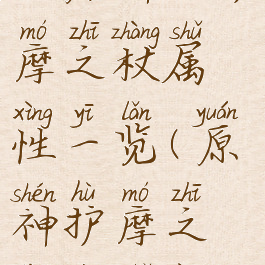 mó zhī zhàng shǔ
摩之杖属
xìng yī lǎn yuán
性一览(原
shén hù mó zhī
神护摩之